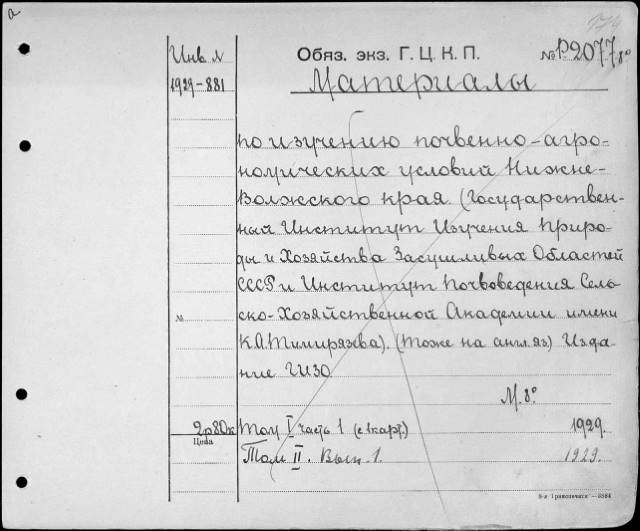 а
174
Инв. №
1929-881
Обяз. экз. Г. Ц. К. П.
№ Р2077 8°
Материалы
по изучению почвенно-агро-
номических условий Нижне-
Волжского края (Государствен-
ный Институт Изучения Приро-
ды и Хозяйства Засушливых Областей
СССР и Институт Почвоведения Сель-
ско-Хозяйственной Академии имени
К.А.Тимирязева). (Тоже на англ. яз) Изда-
ние ГИЗО
№
М. 8°
2р80к Том I часть 1 (с 1 карт.) 1929.
Цена
Том II. Вып. 1. 1929.